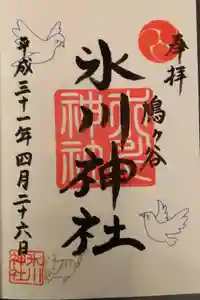 奉拝
鳩ヶ谷
氷川神社
平成三十一年四月二十六日
氷川神社
氷川神社